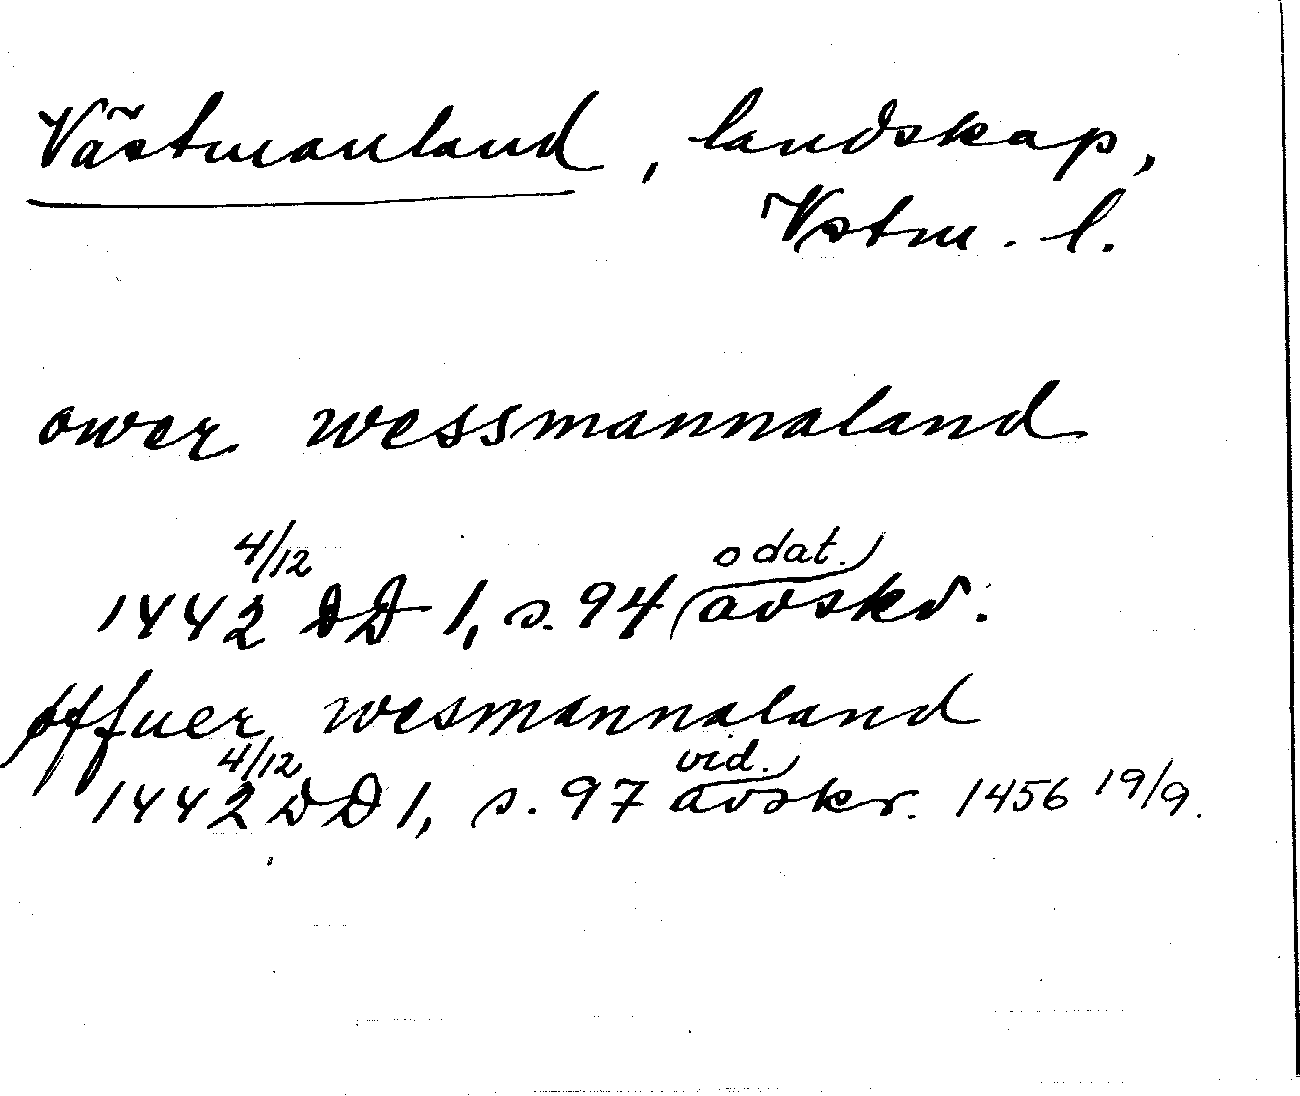 Västmanland, landskap,
Vstm. l.
ower wessmannaland
1442 4/12 DD 1, s. 94 (odat. avskr.
øffuer wesmannaland
1442 4/12 DD 1, s. 97 vid. avskr. 1456 19/9.